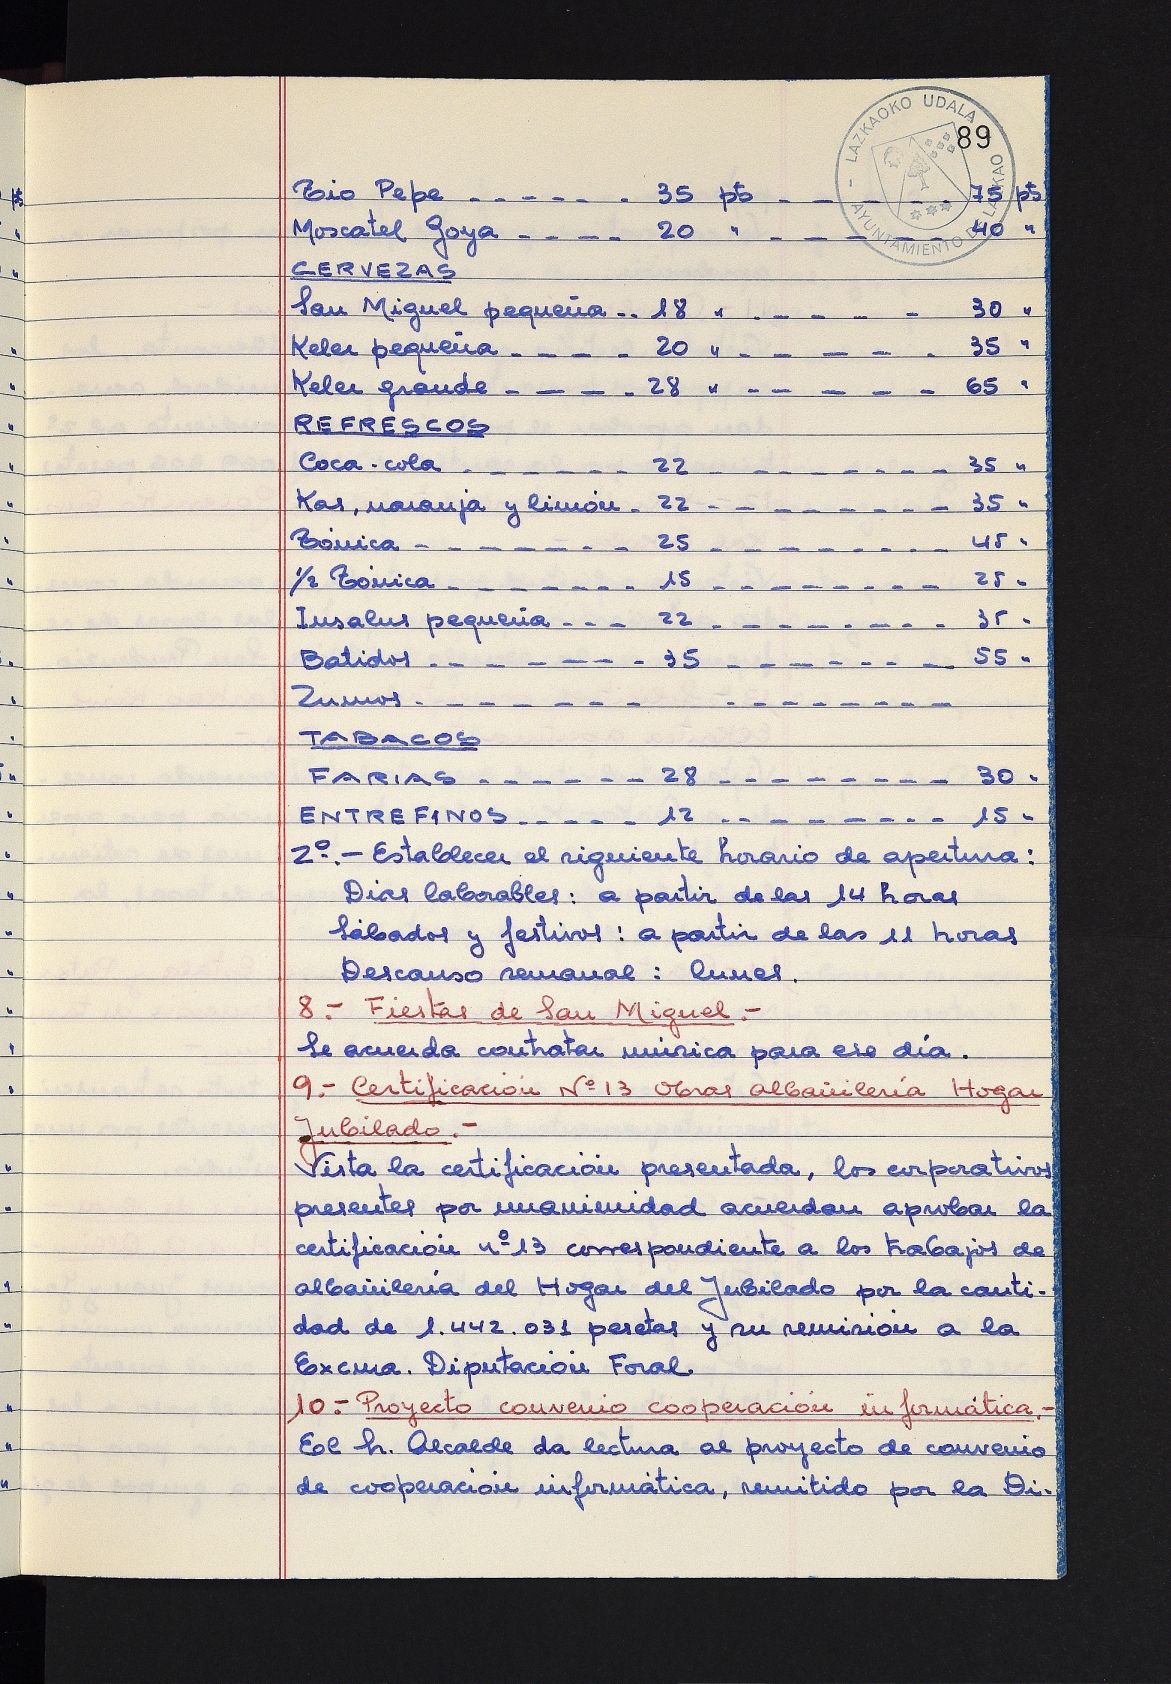 LAZKAOKO UDALA
AYUNTAMIENTO DE LAZKAO
89
Tio Pepe ------ 35 pts ------ 75 pts
Moscatel Goya ---- 20 " ------ 40 "
CERVEZAS
San Miguel pequeña -- 18 " ----- 30 "
Keler pequeña ---- 20 " ------ 35 "
Keler grande ----- 28 " ------ 65 "
REFRESCOS
Coca-cola ------- 22 --------- 35 "
Kas, naranja y limón - 22 --------- 35 "
Tónica -------- 25 --------- 45 "
1/2 Tónica ------- 15 --------- 25 "
Insalus pequeña --- 22 --------- 35 "
Batidos -------- 35 --------- 55 "
Zumos -------- ---------
TABACOS
FARIAS ------- 28 --------- 30 "
ENTREFINOS ----- 12 --------- 15 "
2º.- Establecer el siguiente horario de apertura:
Dias laborables: a partir de las 14 horas
Sábados y festivos: a partir de las 11 horas
Descanso semanal: lunes.
8.- Fiestas de San Miguel.-
Se acuerda contratar música para ese día.
9.- Certificación Nº 13 Obras albañilería Hogar
Jubilado.-
Vista la certificación presentada, los corporativos
presentes por unanimidad acuerdan aprobar la
certificación nº 13 correspondiente a los trabajos de
albañilería del Hogar del Jubilado por la canti-
dad de 1.442.031 pesetas y su remisión a la
Excma. Diputación Foral.
10.- Proyecto convenio cooperación informática.-
El Sr. Alcalde da lectura al proyecto de convenio
de cooperación informática, remitido por la Di-